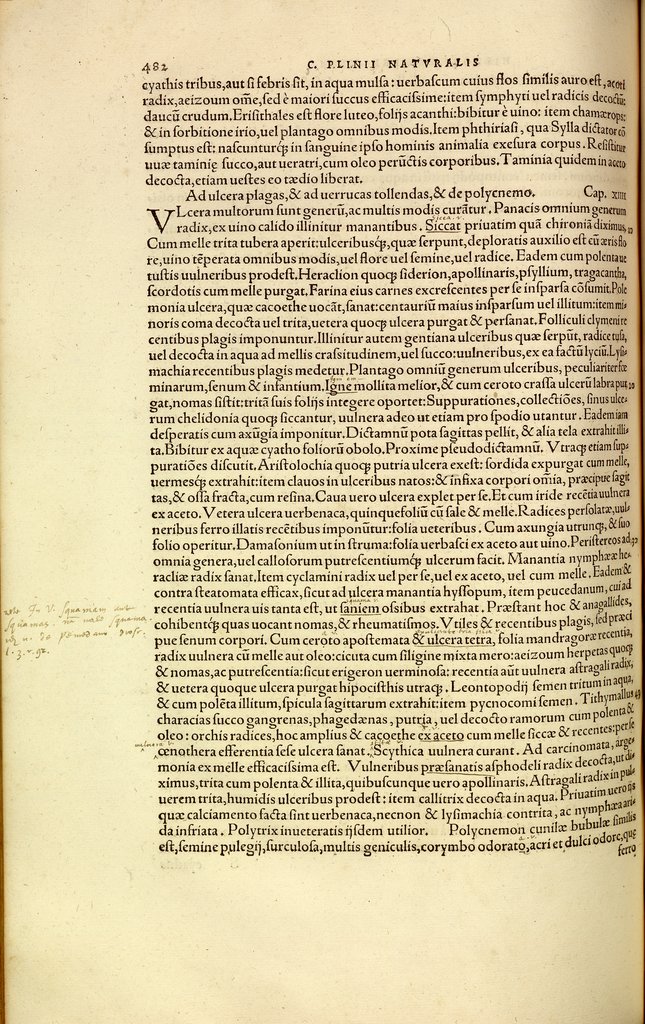 482 C. PLINII NATVRALIS
cyathis tribus,aut si febris sit, in aqua mulsa: uerbascum cuius flos similis auro est, acori
radix,aeizoum om̃e,sed è maiori succus efficacissime:item symphyti uel radicis decoctũ:
daucũ crudum.Erisithales est flore luteo,folijs acanthi:bibitur è uino: item chamærops:
& in sorbitione irio,uel plantago omnibus modis.Item phthiriasi, qua Sylla dictator cõ
sumptus est: nascunturq́; in sanguine ipso hominis animalia exesura corpus. Resistitur
uuæ taminię succo,aut ueratri,cum oleo perũctis corporibus. Taminia quidem in aceto
decocta,etiam uestes eo tædio liberat.
Ad ulcera plagas,& ad uerrucas tollendas,& de polycnemo. Cap. xiiii
VLcera multorum sunt generũ,ac multis modis curãtur. Panacis omnium generum
radix,ex uino calido illinitur manantibus. Siccat priuatim quã chironiã diximus,
Cum melle trita tubera aperit:ulceribusq́;,quæ serpunt,deploratis auxilio est cũ æris flo
re,uino tẽperata omnibus modis,uel flore uel semine,uel radice. Eadem cum polenta ue
tustis uulneribus prodest.Heraclion quoq; siderion,apollinaris,psyllium, tragacantha,
scordotis cum melle purgat. Farina eius carnes excrescentes per se insparsa cõsumit.Pole
monia ulcera,quæ cacoethe uocãt,sanat:centauriũ maius insparsum uel illitum:item mi-
noris coma decocta uel trita,uetera quoq; ulcera purgat & persanat. Folliculi clymeni re
centibus plagis imponuntur.Illinitur autem gentiana ulceribus quæ serpũt, radice tusa,
uel decocta in aqua ad mellis crassitudinem,uel succo:uulneribus,ex ea factũ lyciũ.Lysi-
machia recentibus plagis medetur.Plantago omniũ generum ulceribus, peculiariter fœ
minarum,senum & infantium.Igne mollita melior,& cum ceroto crassa ulcerũ labra pur
gat,nomas sistit:tritã suis folijs integere oportet:Suppurationes,collectiões, sinus ulce-
rum chelidonia quoq; siccantur, uulnera adeo ut etiam pro spodio utantur. Eadem iam
desperatis cum axũgia imponitur.Dictamnũ pota sagittas pellit, & alia tela extrahit illi-
ta.Bibitur ex aquæ cyatho foliorũ obolo.Proxime pseudodictamnũ. Vtraq; etiam sup-
puratiões discutit.Aristolochia quoq; putria ulcera exest: sordida expurgat cum melle,
uermesq́; extrahit:item clauos in ulceribus natos:& infixa corpori om̃ia, præcipue sagit
tas,& ossa fracta,cum resina. Caua uero ulcera explet per se.Et cum iride recẽtia uulnera
ex aceto.Vetera ulcera uerbenaca, quinquefoliũ cũ sale & melle.Radices persolatæ,uul-
neribus ferro illatis recẽtibus imponũtur:folia ueteribus . Cum axungia utrunq;, & suo
folio operitur.Damasonium ut in struma:folia uerbasci ex aceto aut uino.Peristereos ad
omnia genera,uel callosorum putrescentiumq́; ulcerum facit. Manantia nymphææ he-
racliæ radix sanat.Item cyclamini radix uel per se,uel ex aceto, uel cum melle. Eadem &
contra steatomata efficax,sicut ad ulcera manantia hyssopum, item peucedanum, cui ad
recentia uulnera uis tanta est, ut saniem ossibus extrahat. Præstant hoc & anagallides,
cohibentq́; quas uocant nomas,& rheumatismos. Vtiles & recentibus plagis, sed præci
pue senum corpori. Cum ceroto apostemata & ulcera tetra, folia mandragoræ recentia,
radix uulnera cũ melle aut oleo:cicuta cum siligine mixta mero:aeizoum herpetas quoq;
& nomas,ac putrescentia:sicut erigeron uerminosa: recentia aũt uulnera astragali radix,
& uetera quoque ulcera purgat hipocisthis utraq;. Leontopodij semen tritum in aqua,
& cum polẽta illitum,spicula sagittarum extrahit:item pycnocomi semen. Tithymallus
characias succo gangrenas,phagedænas, putria, uel decocto ramorum cum polenta &
oleo: orchis radices,hoc amplius & cacoethe ex aceto cum melle siccæ & recentes:per se
œnothera efferentia sese ulcera sanat. Scythica uulnera curant. Ad carcinomata, arge
monia ex melle efficacissima est. Vulneribus præsanatis asphodeli radix decocta,ut di-
ximus,trita cum polenta & illita,quibuscunque uero apollinaris. Astragali radix in pul-
uerem trita,humidis ulceribus prodest: item callitrix decocta in aqua. Priuatim uero ijs
quæ calciamento facta sint uerbenaca,necnon & lysimachia contrita, ac nymphæa ari-
da infriata . Polytrix inueteratis ijsdem utilior. Polycnemon cunilæ bubulæ similis
est,semine pulegij,surculosa,multis geniculis,corymbo odorato,acri et dulci odore,quę
ferro